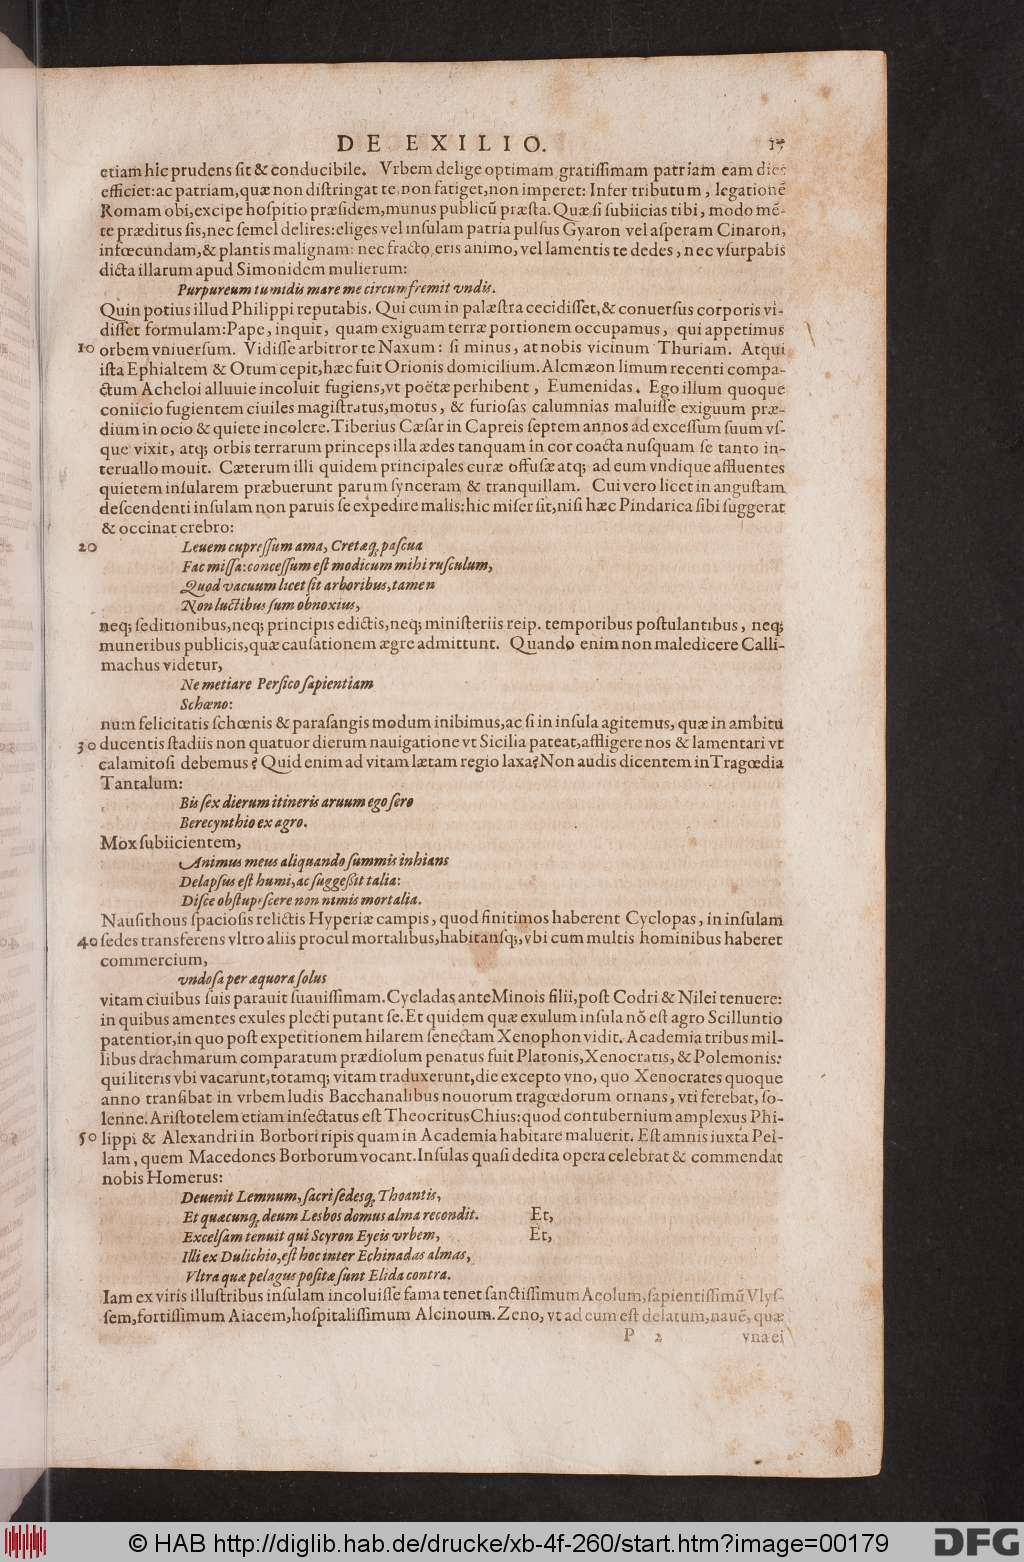 DE EXILIO. 17
etiam hic prudens sit & conducibile. Vrbem delige optimam gratissimam patriam eam dies
efficiet: ac patriam, quæ non distringat te, non fatiget, non imperet: Infer tributum, legationē
Romam obi, excipe hospitio præsidem, munus publicū præsta. Quæ si subiicias tibi, modo mē-
te præditus sis, nec semel delires: eliges vel insulam patria pulsus Gyaron vel asperam Cinaron,
infœcundam, & plantis malignam: nec fracto eris animo, vel lamentis te dedes, nec vsurpabis
dicta illarum apud Simonidem mulierum:
Purpureum tumidis mare me circumfremit vndis.
Quin potius illud Philippi reputabis. Qui cum in palæstra cecidisset, & conuersus corporis vi-
disset formulam: Pape, inquit, quam exiguam terræ portionem occupamus, qui appetimus
10 orbem vniuersum. Vidisse arbitror te Naxum: si minus, at nobis vicinum Thuriam. Atqui
ista Ephialtem & Otum cepit, hæc fuit Orionis domicilium. Alcmæon limum recenti compa-
ctum Acheloi alluuie incoluit fugiens, vt poëtæ perhibent, Eumenidas. Ego illum quoque
coniicio fugientem ciuiles magistratus, motus, & furiosas calumnias maluisse exiguum præ-
dium in ocio & quiete incolere. Tiberius Cæsar in Capreis septem annos ad excessum suum vs-
que vixit, atq; orbis terrarum princeps illa ædes tanquam in cor coacta nusquam se tanto in-
teruallo mouit. Cæterum illi quidem principales curæ offusæ atq; ad eum vndique affluentes
quietem insularem præbuerunt parum synceram & tranquillam. Cui vero licet in angustam
descendenti insulam non paruis se expedire malis: hic miser sit, nisi hæc Pindarica sibi suggerat
& occinat crebro:
20 Leuem cupressum ama, Cretæq; pascua
Fac missa: concessum est modicum mihi rusculum,
Quod vacuum licet sit arboribus, tamen
Non luctibus sum obnoxius,
neq; seditionibus, neq; principis edictis, neq; ministeriis reip. temporibus postulantibus, neq;
muneribus publicis, quæ causationem ægre admittunt. Quando enim non maledicere Calli-
machus videtur,
Ne metiare Persico sapientiam
Schœno:
num felicitatis schœnis & parasangis modum inibimus, ac si in insula agitemus, quæ in ambitu
30 ducentis stadiis non quatuor dierum nauigatione vt Sicilia pateat, affligere nos & lamentari vt
calamitosi debemus? Quid enim ad vitam lætam regio laxa? Non audis dicentem in Tragœdia
Tantalum:
Bis sex dierum itineris aruum ego sero
Berecynthio ex agro.
Mox subiicientem,
Animus meus aliquando summis inhians
Delapsus est humi, ac suggeßit talia:
Disce obstupescere non nimis mortalia.
Nausithous spaciosis relictis Hyperiæ campis, quod finitimos haberent Cyclopas, in insulam
40 sedes transferens vltro aliis procul mortalibus, habitansq;, vbi cum multis hominibus haberet
commercium,
vndosa per æquora solus
vitam ciuibus suis parauit suauissimam. Cycladas ante Minois filii, post Codri & Nilei tenuere:
in quibus amentes exules plecti putant se. Et quidem quæ exulum insula nō est agro Scilluntio
patentior, in quo post expetitionem hilarem senectam Xenophon vidit. Academia tribus mil-
libus drachmarum comparatum prædiolum penatus fuit Platonis, Xenocratis, & Polemonis:
qui literis vbi vacarunt, totamq; vitam traduxerunt, die excepto vno, quo Xenocrates quoque
anno transibat in vrbem ludis Bacchanalibus nouorum tragœdorum ornans, vti ferebat, so-
lenne. Aristotelem etiam insectatus est Theocritus Chius: quod contubernium amplexus Phi-
50 lippi & Alexandri in Borbori ripis quam in Academia habitare maluerit. Est amnis iuxta Pel-
lam, quem Macedones Borborum vocant. Insulas quasi dedita opera celebrat & commendat
nobis Homerus:
Deuenit Lemnum, sacri sedesq; Thoantis,
Et quæcunq; deum Lesbos domus alma recondit. Et,
Excelsam tenuit qui Scyron Eyeis vrbem, Et,
Illi ex Dulichio, est hoc inter Echinadas almas,
Vltra quæ pelagus positæ sunt Elida contra.
Iam ex viris illustribus insulam incoluisse fama tenet sanctissimum Aeolum, sapientissimū Vlys-
sem, fortissimum Aiacem, hospitalissimum Alcinoum. Zeno, vt ad eum est delatum, nauē, quæ
P 2 vna ei
© HAB http://diglib.hab.de/drucke/xb-4f-260/start.htm?image=00179
DFG